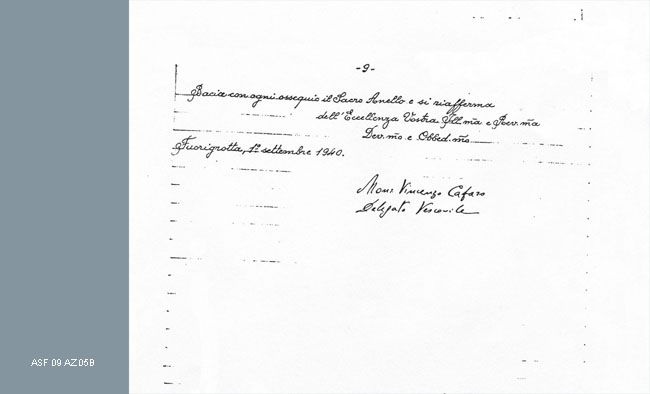 -9-
Bacia con ogni ossequio il Sacro Anello e si riafferma
dell'Eccellenza Vostra Ill.ma e Rev.ma
Dev.mo e Obbed.mo
Fuorigrotta, 1º settembre 1940.
Mons Vincenzo Cafaro
Delegato Vescovile
ASF 09 AZ05B